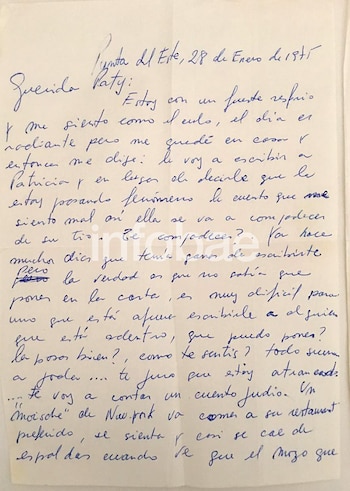 Punta del Este, 28 de Enero de 1975
Querida Paty:
Estoy con un fuerte resfrio
y me siento como el culo, el día es
radiante pero me quedé en casa y
entonces me dije: le voy a escribir a
Patricia y en lugar de decirle que la
estoy pasando fenómeno le cuento que me
siento mal así ella se va a compadecer
de su tio. Te compadeces? Ya hace
muchos dias que tenia ganas de escribirte
pero la verdad es que no sabía que
poner en la carta, es muy dificil para
uno que está afuera escribirle a alguien
que está adentro, que puedo poner?
la pasas bien?, como te sentís? todo suena
a joda .... te juro que estoy
.... te voy a contar un cuento judio: Un
"moishe" de New York va a comer a su restaurant
preferido, se sienta y casi se cae de
espaldas cuando ve que el mozo que
infobae